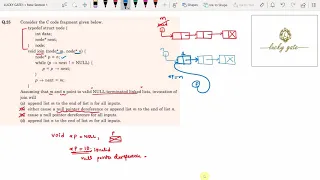 LUCKY GATE
Q.25
Consider the C code fragment given below.
typedef struct node {
int data;
node* next;
} node;
void join (node* m, node* n) {
node* p = n;
while (p -> next != NULL) {
p = p -> next;
}
p -> next = m;
}
Assuming that m and n point to valid NULL terminated linked lists, invocation of
join will
(a) append list m to the end of list n for all inputs.
(b) either cause a null pointer dereference or append list m to the end of list n.
(c) cause a null pointer dereference for all inputs.
(d) append list n to the end of list m for all inputs.
void *P = NULL,
P
*P = 10; invalid
null pointer dereference.
lucky gate